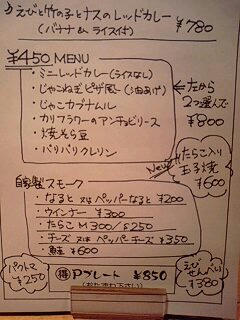 えびと竹の子とナスのレッドカレー
(バナナ&ライス付) ¥780
¥450 MENU
・ミニレッドカレー(ライスなし)
・じゃこねぎピザ風(油あげ)
・じゃこカプナムル
・カリフラワーのアンチョビソース
・焼そら豆
・パリパリクレソン
だから
2つ選んで
¥800
New!!
たらこ入り
玉子焼
¥600
自家製スモーク
・なると 又は ペッパーなると ¥200
・ウインナー ¥300
・たらこ M300/S250
・チーズ 又は ペッパーチーズ ¥350
・鮭 ¥600
パクトマ
¥250
得 Pプレート ¥850
えび
せんべい
¥380